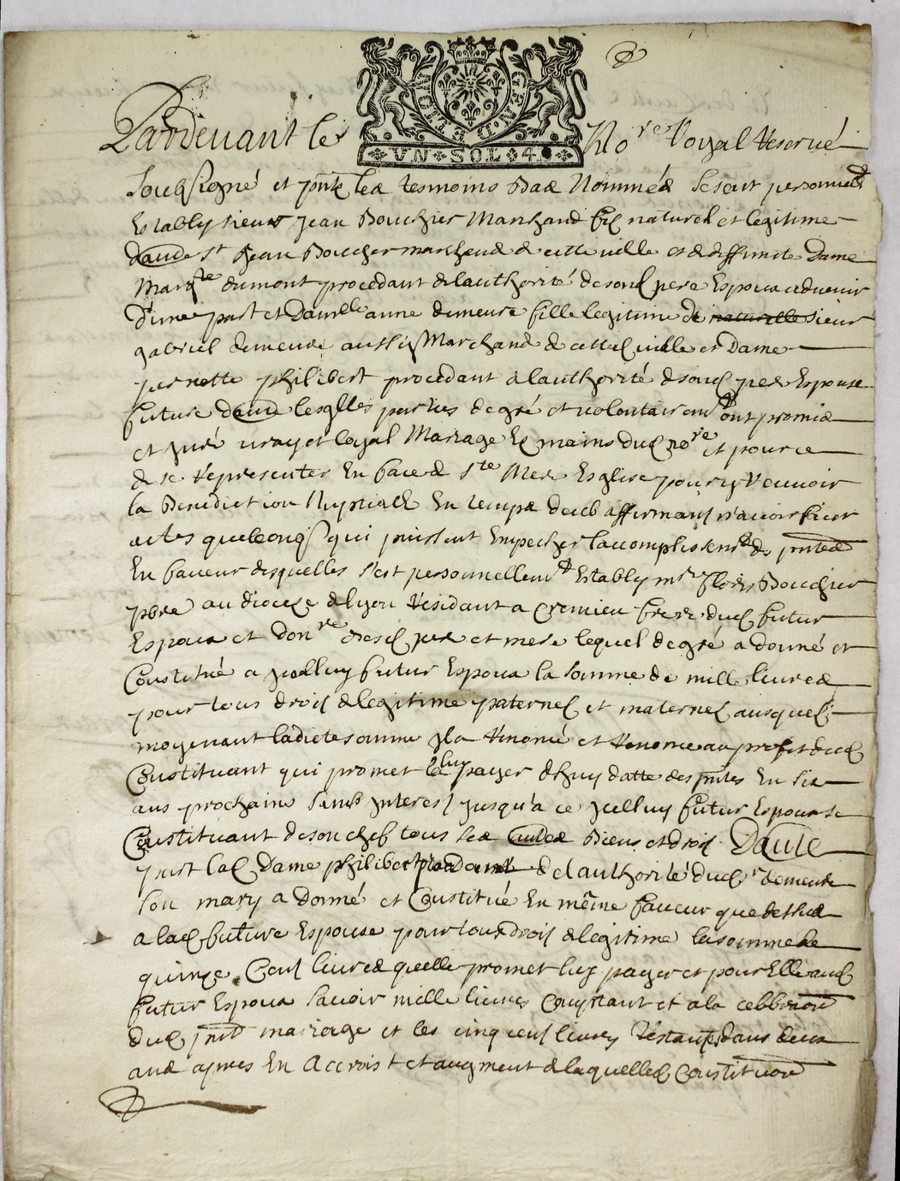 GEN. D. ETTON
VN • SOL • 4.
Pardevant le No^re Royal Reservé
Soubsigné et p^nts les tesmoins Bas Nommés se sont personnell^t
Establys sieur Jean Bouchier Marchand fils naturel et legitime
d'aude s^r Jean Boucher marchand de cette ville et de deffunte Dame
Marg^te dumont procedant de lauthorité de son d pere Espoux advenir
d'une part et Dam^lle anne demeure fille legitime de naturelle sieur
gabriel demeure aussi Marchand de cette ville et Dame
pernette philibert procedant de lauthorité de son d pere Espouse
future d'aude lesqlles parties de gré et volontairem^t ont promis
et juré vray et loyal Mariage Es mains dud no^re et pour ce
de se representer En face de s^te Mere Esglise pour y recevoir
la Benediction Nuptiale En temps deub affirmant n'avoir fait
actes quelconqs qui puissent Empescher laccomplissem^t des p^ntes
En faveur desquelles s'est personnellem^t Estably m^re Bouchier
pbre au diocese de lyon residant a Cremieu frere dud futur
Espoux et don^re desd pere et mere lequel de gré a donné et
Constitué a jcelluy futur Espoux la somme de mille livres
pour tous droits de legitime paternel et maternel ausquels
moyenant ladicte somme jl a renoncé et renonce au profit dud
Constituant qui promet luy payer d'huy datte des p^ntes En six
ans prochains sans jnterest jusqu'a ce jcelluy futur Espoux se
Constituant de son chef tous ses autres Biens et droits D'aude
part lad Dame philibert de l'authorité dud s^r demeure
son mary a donné et Constitué En même faveur que dessus
a lad future Espouse pour tous droits de legitime la somme de
quinze Cent livres quelle promet luy payer et pour Elle aud
futur Espoux savoir mille livres Comptant et a la celebraon
dud p^nt mariage et les cinq cent livres restants dans deux
ans apres En accroist et augment de laquelle Constituon